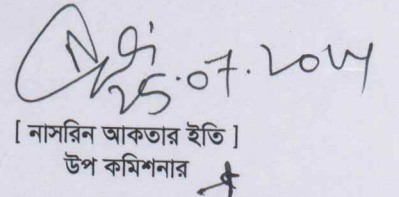 25.07.2024
[ নাসরিন আকতার ইতি ]
উপ কমিশনার